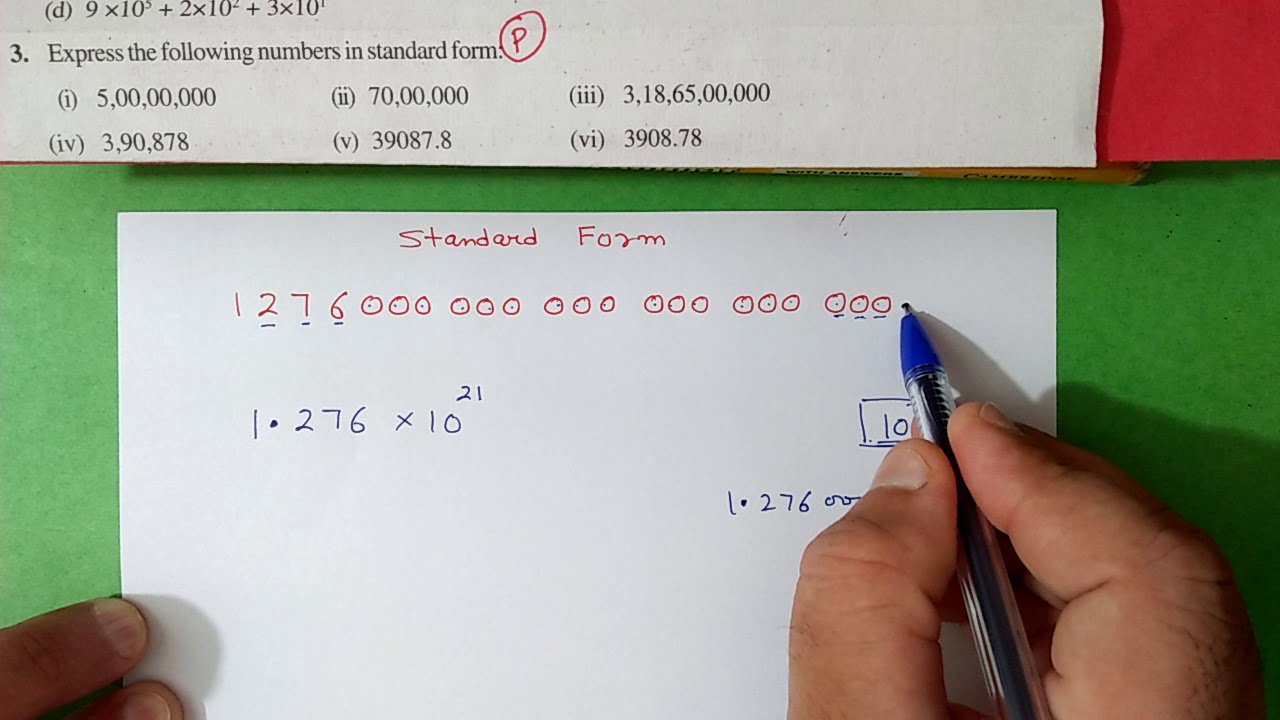 (d) 9 ×10⁵ + 2×10² + 3×10¹
3. Express the following numbers in standard form: P
(i) 5,00,00,000 (ii) 70,00,000 (iii) 3,18,65,00,000
(iv) 3,90,878 (v) 39087.8 (vi) 3908.78
WITH ANSWERS CAMBRIDGE
Standard Form
1276000 000 000 000 000 000.
1.276 × 10²¹
10
1.276 00